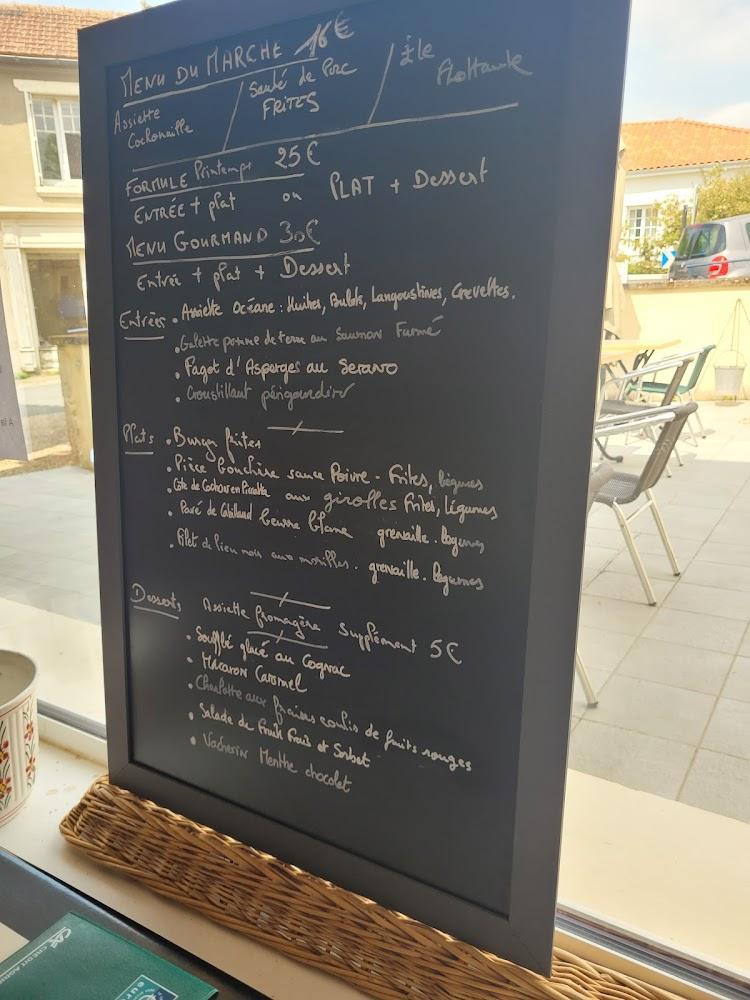 MENU DU MARCHE 16€
Assiette Cochonaille / Sauté de Porc FRITES / Île flottante
FORMULE Printemps 25€
ENTRÉE + plat ou PLAT + Dessert
MENU GOURMAND 30€
Entrée + plat + Dessert
Entrées • Assiette Océane : Huîtres, Bulots, Langoustines, Crevettes.
• Galette pomme de terre au Saumon Fumé
• Fagot d'Asperges au Serano
• Croustillant périgourdin
Plats • Burger frites
• Pièce bouchère sauce Poivre - frites, légumes
• Côte de Cochon en Piccatta aux girolles frites, légumes
• Pavé de Cabillaud beurre blanc grenaille. légumes
• Filet de lieu noir aux morilles. grenaille. légumes
Desserts Assiette fromagère Supplément 5€
• Soufflé glacé au Cognac
• Macaron Caramel
• Charlotte aux fraises coulis de fruits rouges
• Salade de Fruits Frais et Sorbet
• Vacherin Menthe chocolat
CA CRÉDIT AGRI